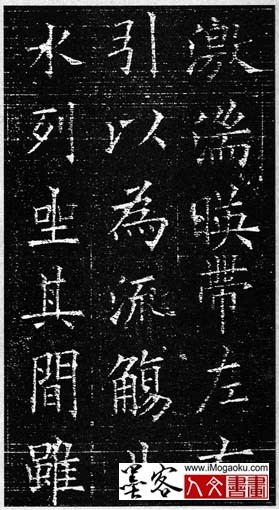 激湍暎帶左右
引以為流觴
水列坐其間雖
www.iMogaoku.com
墨客
人文書畫